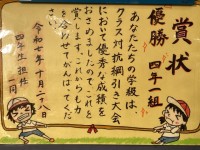 賞状
優勝 四年一組
あなたたちの学級は、
クラス対抗綱引き大会
において優秀な成績を
おさめましたのでこれを
賞します。これからも力
を合わせてがんばってくだ
さい。
令和七年十月二十八日
四年生 担任一同